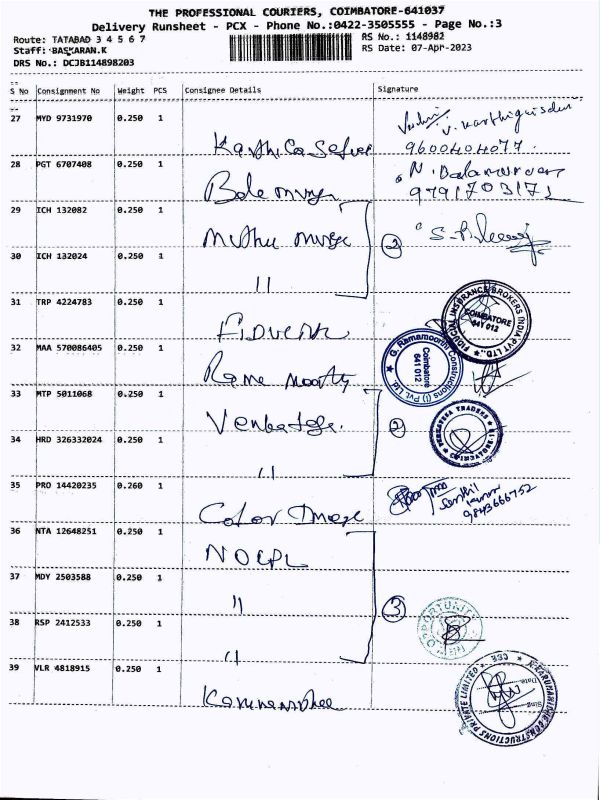 THE PROFESSIONAL COURIERS, COIMBATORE-641037
Delivery Runsheet - PCX - Phone No.:0422-3505555 - Page No.:3
Route: TATABAD 3 4 5 6 7
RS No.: 1148982
Staff: BASKARAN.K
RS Date: 07-Apr-2023
DRS No.: DCJB114898203
S No Consignment No Weight PCS Consignee Details Signature
27 MYD 9731970 0.250 1
9600404077
28 PGT 6707408 0.250 1
9791703171
29 ICH 132082 0.250 1 Muthu Muruge
2
30 ICH 132024 0.250 1
11
31 TRP 4224783 0.250 1
FIDUCIAL INSURANCE BROKERS INDIA PVT LTD.,
COIMBATORE
641 012
32 MAA 570086405 0.250 1 Rama Moorthy
G. Ramamoorthi Constructions (I) Pvt. Ltd.
Coimbatore
641 012
33 MTP 5011068 0.250 1 Venkatesa
2
VENKATESA TRADERS
34 HRD 326332024 0.250 1
11
35 PRO 14420235 0.260 1 Color Image
Senthil
Kumar
9843666752
36 NTA 12648251 0.250 1 NOCPL
37 MDY 2503588 0.250 1 11
3
38 RSP 2412533 0.250 1 11
OPPORTUNITY
39 VLR 4818915 0.250 1
CCE
PRIVATE LIMITED
CONSTRUCTIONS
Date:
Sing